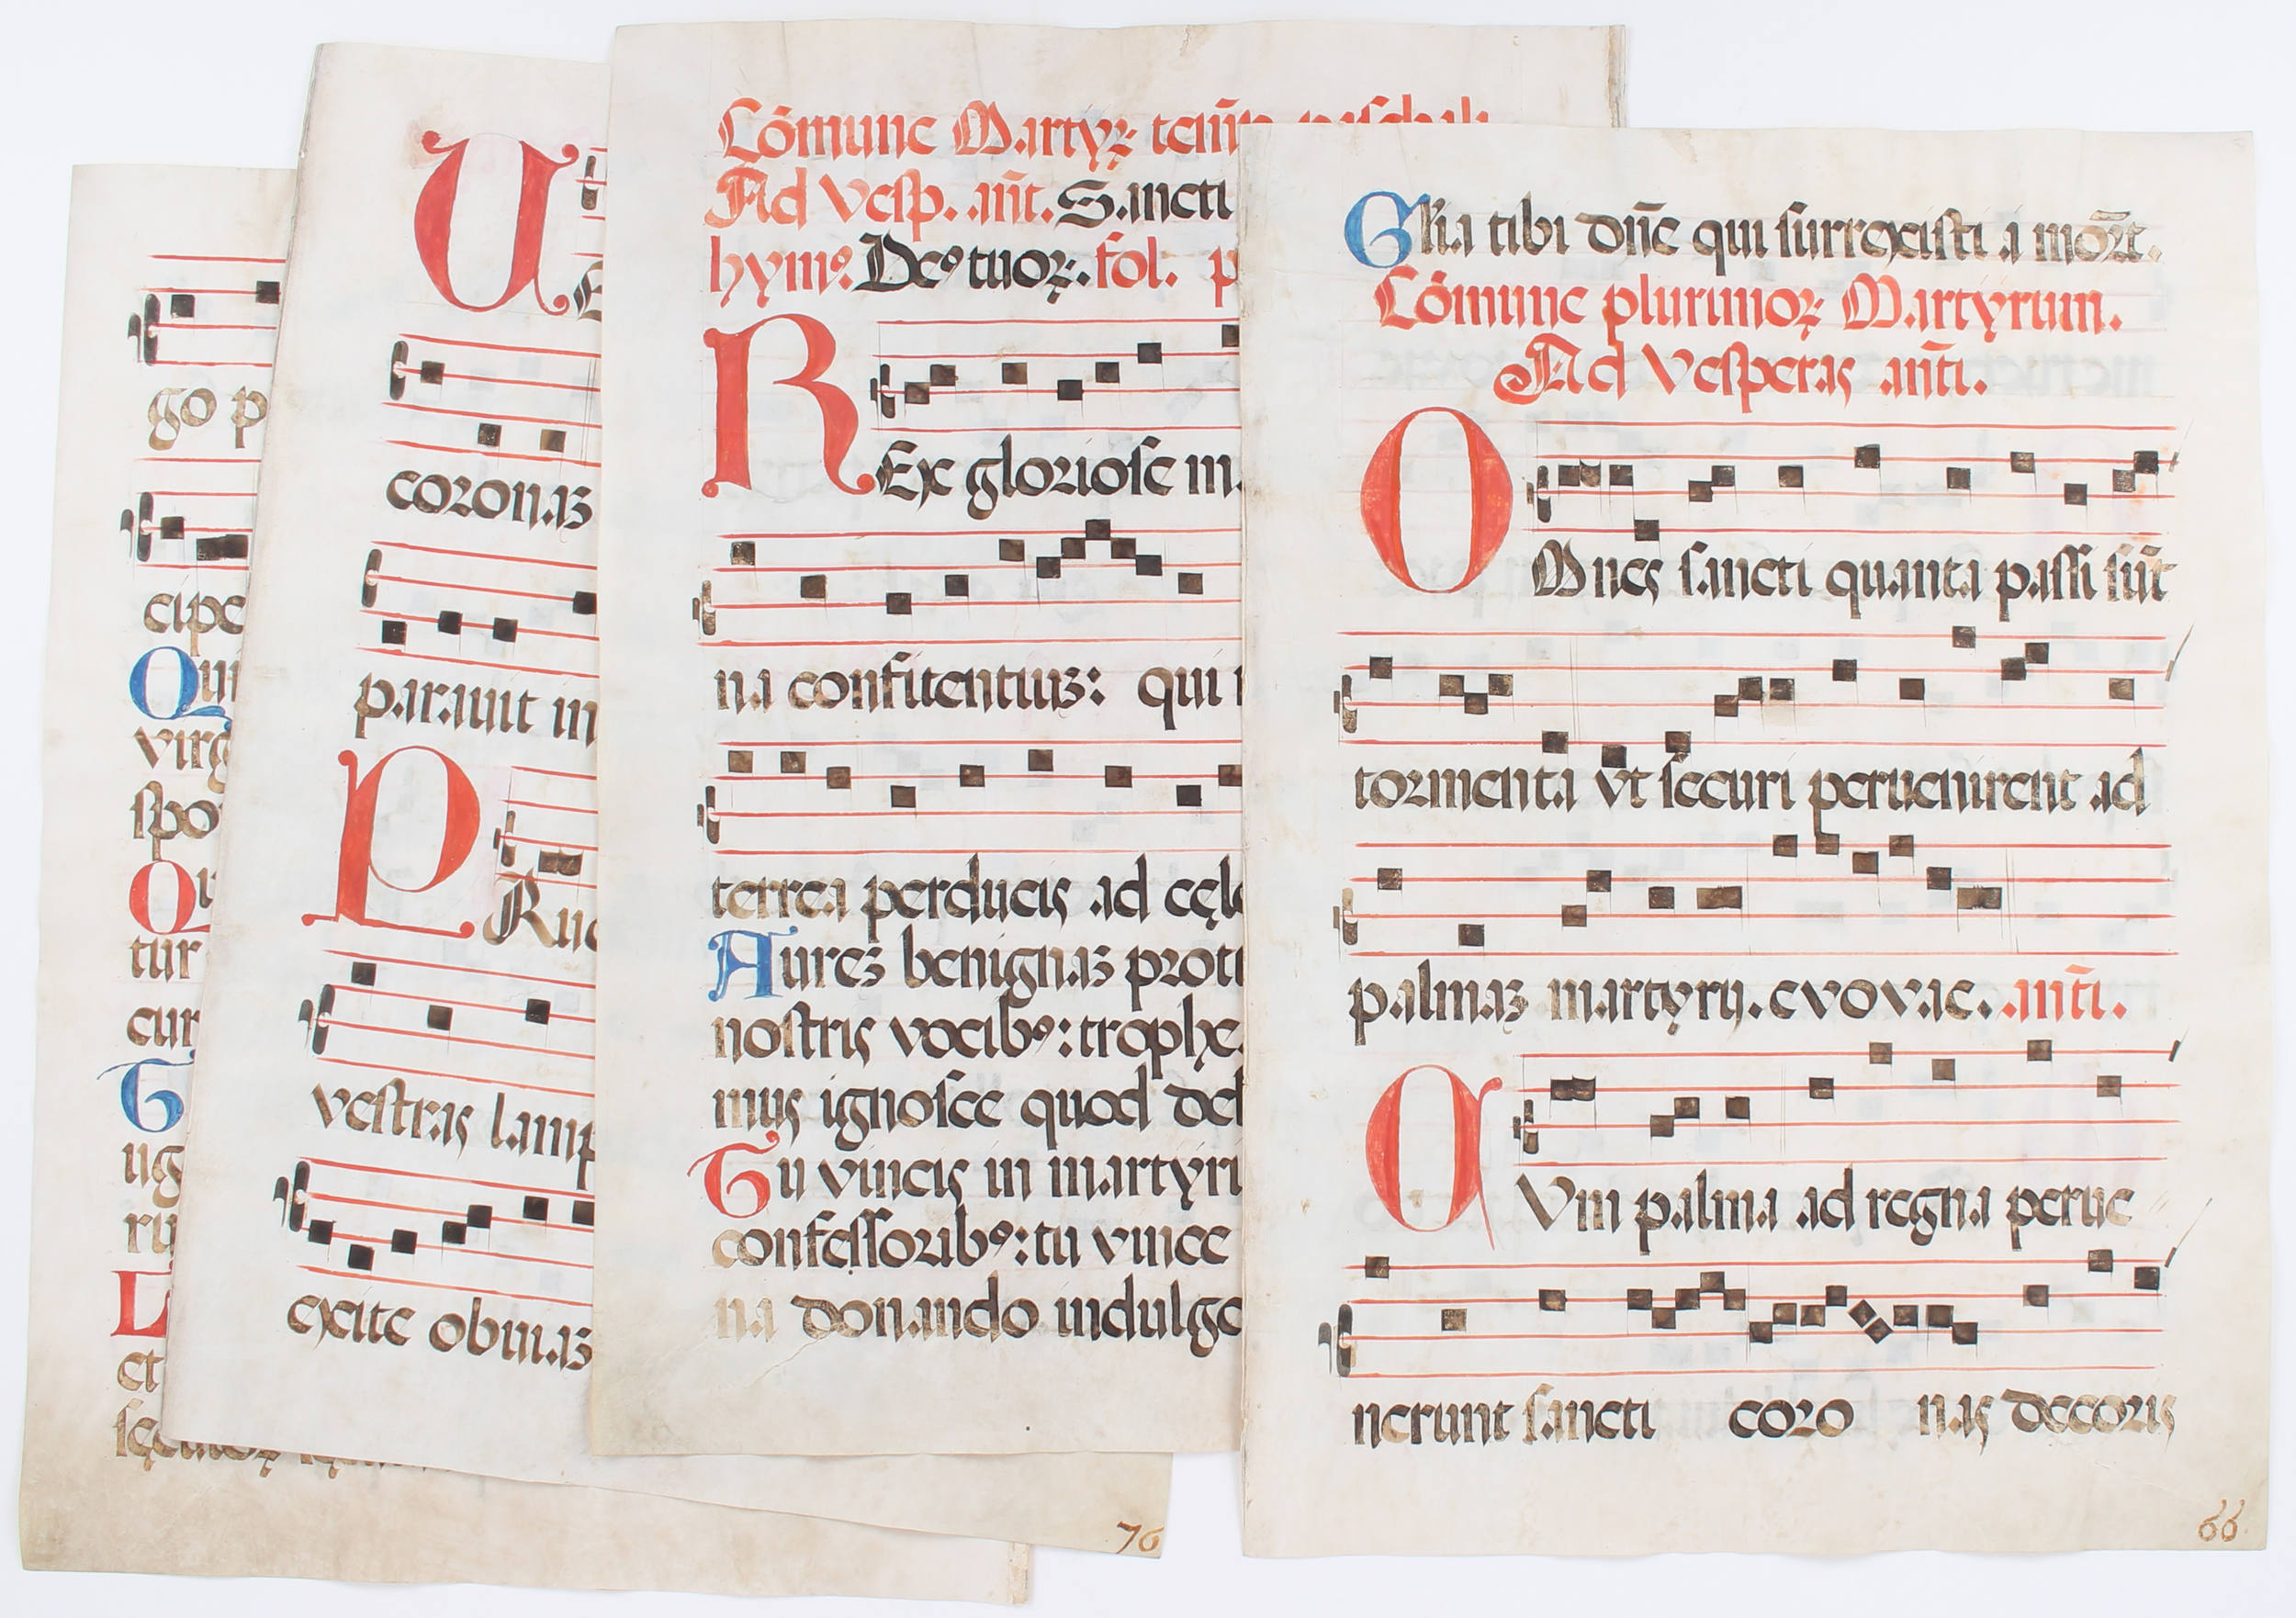 go p
cipe
Qui
virg
spo
Qu
tur
cur
G
ug
rij
L
et
U
E
coronaʒ
parauit in
P
Rue
vestras lamp
exite obuiaʒ
76
Cōmune Martyꝝ tem̄p. paschali
Ad Vesp. an̄t. Sancti
hymꝰ. Deꝰ tuoꝝ. fol. p
R
Ex gloriose m
na confitentiuʒ: qui
terrea perducis ad cęle
Aureʒ benignaʒ prot
nostris vocibꝰ: trophe
mus ignosce quod del
Tu vincis in martyri
confessoribꝰ: tu vince
na donando indulge
Gl̄ia tibi dn̄e qui surrexisti a mōrt.
Cōmune plurimoꝝ Martyrum.
Ad Vesperas an̄ti.
O
Mnes sancti quanta passi sūt
tormenta vt securi peruenirent ad
palmaʒ martyrij. evovae. an̄ti.
C
Vm palma ad regna perue
nerunt sancti coro nas decoris
66